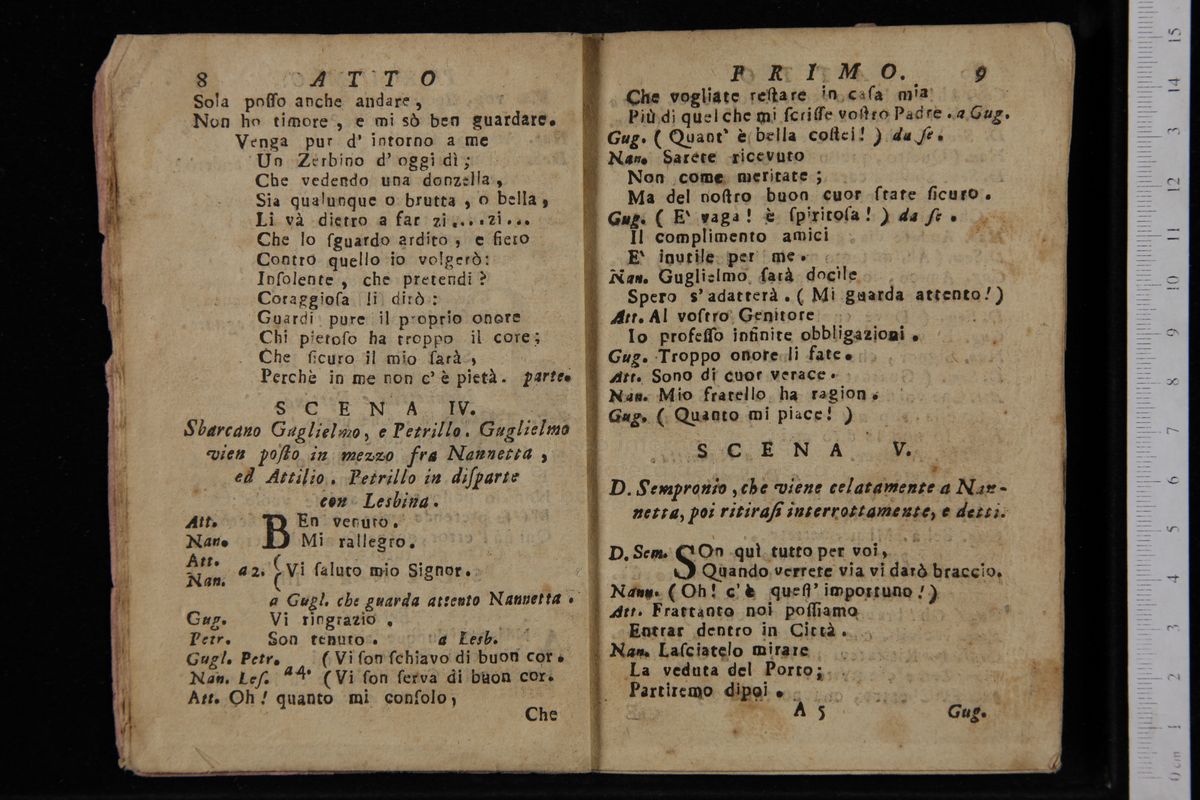 8 ATTO
Sola posso anche andare,
Non ho timore, e mi sò ben guardare.
Venga pur d' intorno a me
Un Zerbino d' oggi dì;
Che vedendo una donzella,
Sia qualunque o brutta, o bella,
Li và dietro a far zi....zi...
Che lo sguardo ardito, e fiero
Contro quello io volgerò:
Insolente, che pretendi?
Coraggiosa li dirò:
Guardi pure il proprio onore
Chi pietoso ha troppo il core;
Che sicuro il mio sarà,
Perchè in me non c' è pietà. parte.
SCENA IV.
Sbarcano Guglielmo, e Petrillo. Guglielmo
vien posto in mezzo fra Nannetta,
ed Attilio. Petrillo in disparte
con Lesbina.
Att. BEn venuto.
Nan. Mi rallegro.
Att.
Nan. a 2. (Vi saluto mio Signor.
a Gugl. che guarda attento Nannetta.
Gug. Vi ringrazio.
Petr. Son tenuto. a Lesb.
Gugl. Petr. a 4. (Vi son schiavo di buon cor.
Nan. Les. (Vi son serva di buon cor.
Att. Oh! quanto mi consolo,
Che
PRIMO. 9
Che vogliate restare in casa mia
Più di quel che mi scrisse vostro Padre. a Gug.
Gug. (Quant' è bella costei!) da se.
Nan. Sarete ricevuto
Non come meritate;
Ma del nostro buon cuor state sicuro.
Gug. (E' vaga! è spiritosa!) da se.
Il complimento amici
E' inutile per me.
Nan. Guglielmo sarà docile
Spero s' adatterà. (Mi guarda attento!)
Att. Al vostro Genitore
Io professo infinite obbligazioni.
Gug. Troppo onore li fate.
Att. Sono di cuor verace.
Nan. Mio fratello ha ragion.
Gug. (Quanto mi piace!)
SCENA V.
D. Sempronio, che viene celatamente a Nan-
netta, poi ritirasi interrottamente, e detti.
D. Sem. SOn quì tutto per voi,
Quando verrete via vi darò braccio.
Nann. (Oh! c' è quest' importuno!)
Att. Frattanto noi possiamo
Entrar dentro in Città.
Nan. Lasciatelo mirare
La veduta del Porto;
Partiremo dipoi.
A 5 Gug.
0 cm 1 2 3 4 5 6 7 8 9 10 11 12 13 14 15